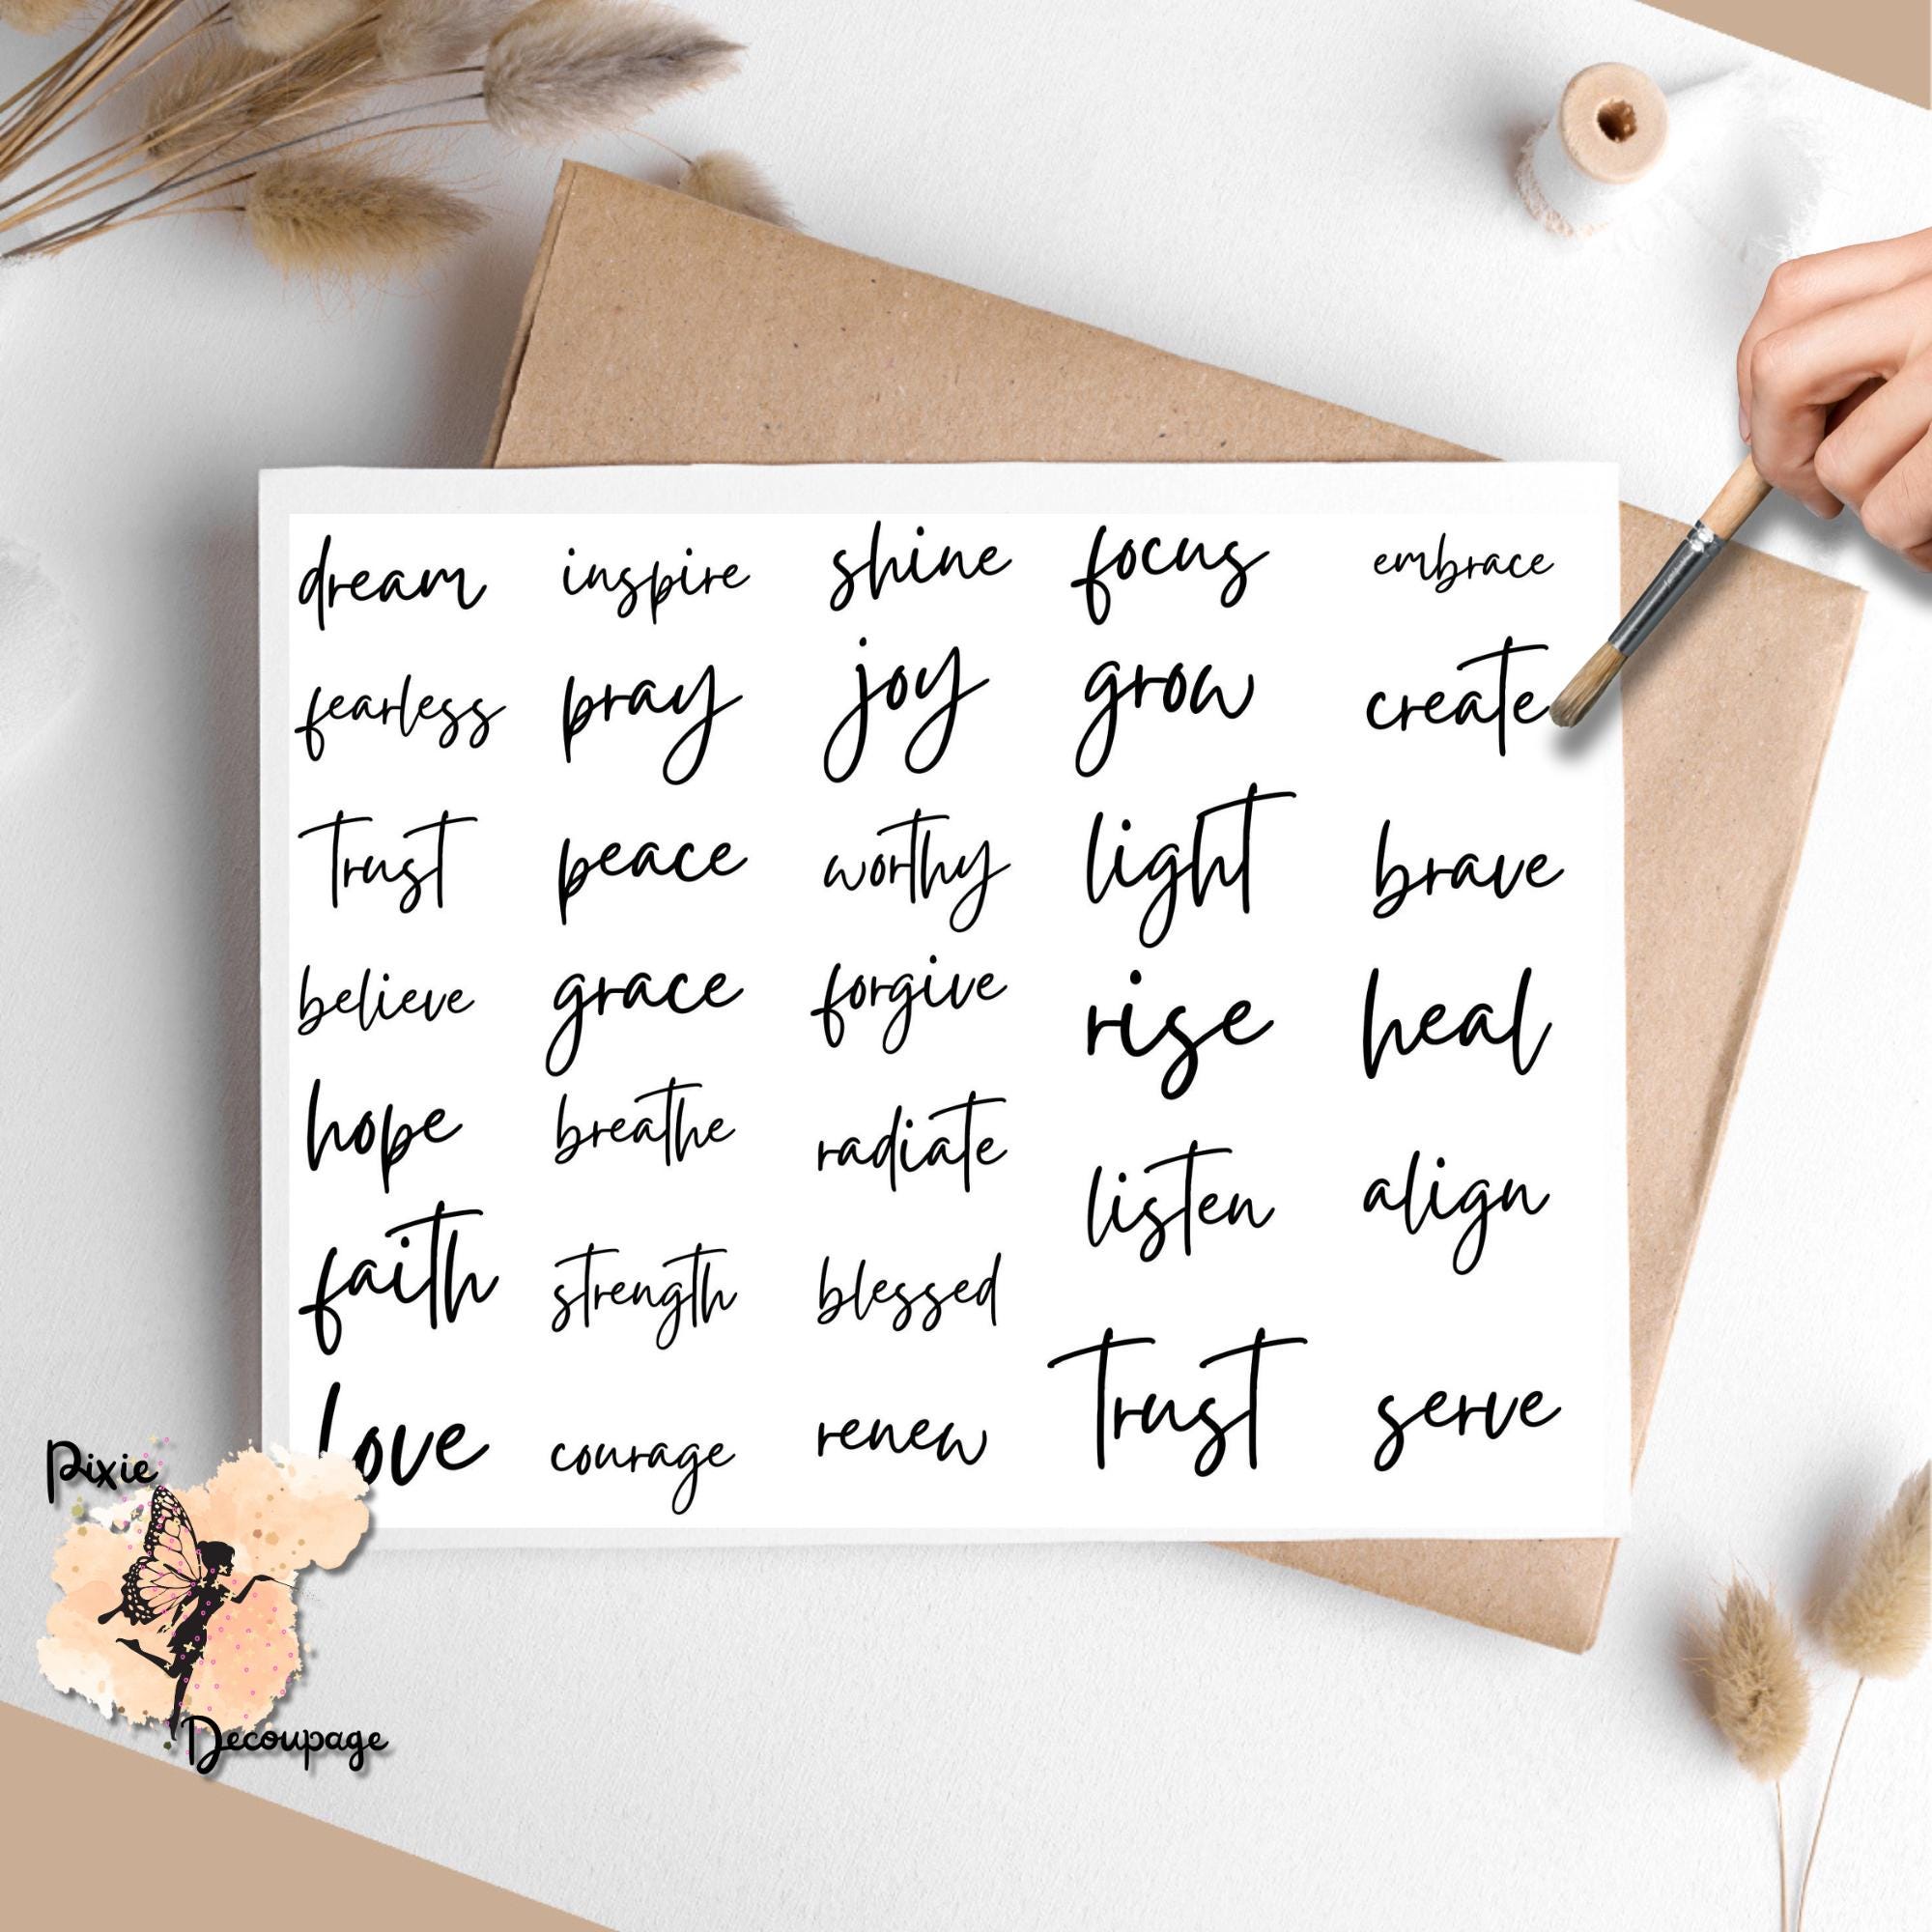 dream inspire shine focus embrace
fearless pray joy grow create
trust peace worthy light brave
believe grace forgive rise heal
hope breathe radiate listen align
faith strength blessed trust serve
love courage renew
Pixie
Decoupage